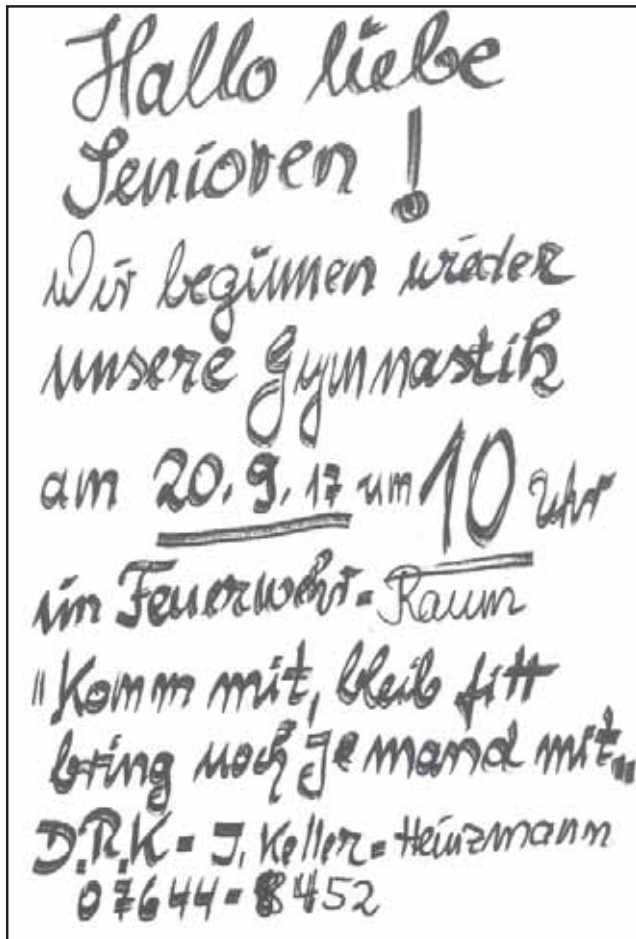 Hallo liebe
Senioren!
Wir beginnen wieder
unsere Gymnastik
am 20.9.17 um 10 Uhr
im Feuerwehr=Raum
"Komm mit, bleib fitt
bring noch Jemand mit"
D.R.K= J. Keller=Heinzmann
07644-8452